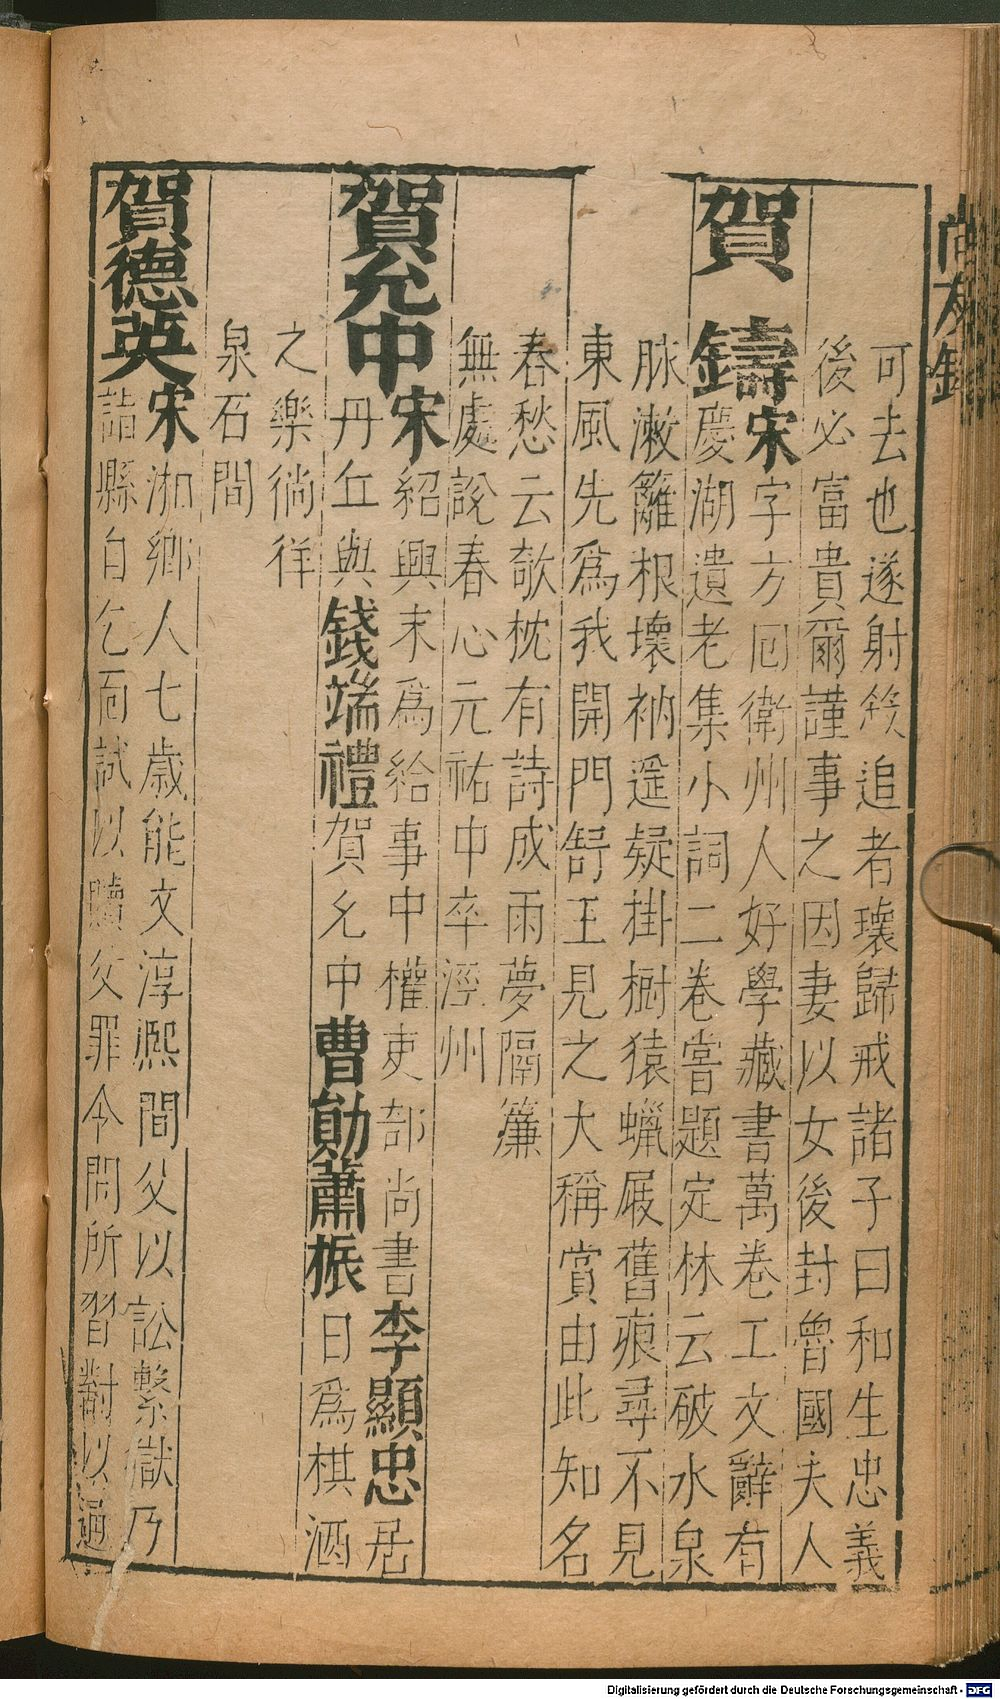 尚友錄
可去也遂射殺追者瓌歸戒諸子曰和生忠義
後必富貴爾謹事之因妻以女後封魯國夫人
賀鑄宋字方回衛州人好學藏書萬卷工文辭有
慶湖遺老集小詞二卷嘗題定林云破水泉
脉漱籬根壞衲遥疑掛樹猿蠟屐舊痕尋不見
東風先爲我開門舒王見之大稱賞由此知名
春愁云欹枕有詩成雨夢隔簾
無處說春心元祐中卒涇州
賀允中宋紹興末爲給事中權吏部尚書李顯忠居
丹丘與錢端禮賀允中曹勛蕭振日爲棋酒
之樂徜徉
泉石間
賀德英宋湘鄉人七歲能文淳熙間父以訟繫獄乃
詣縣自乞面試以贖父罪令問所習對以過
Digitalisierung gefördert durch die Deutsche Forschungsgemeinschaft - DFG